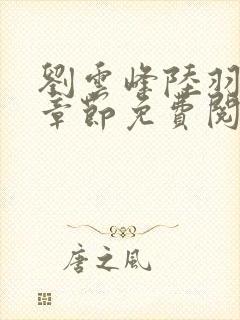 劉雲峰陸羽
章節免費閱
唐之風